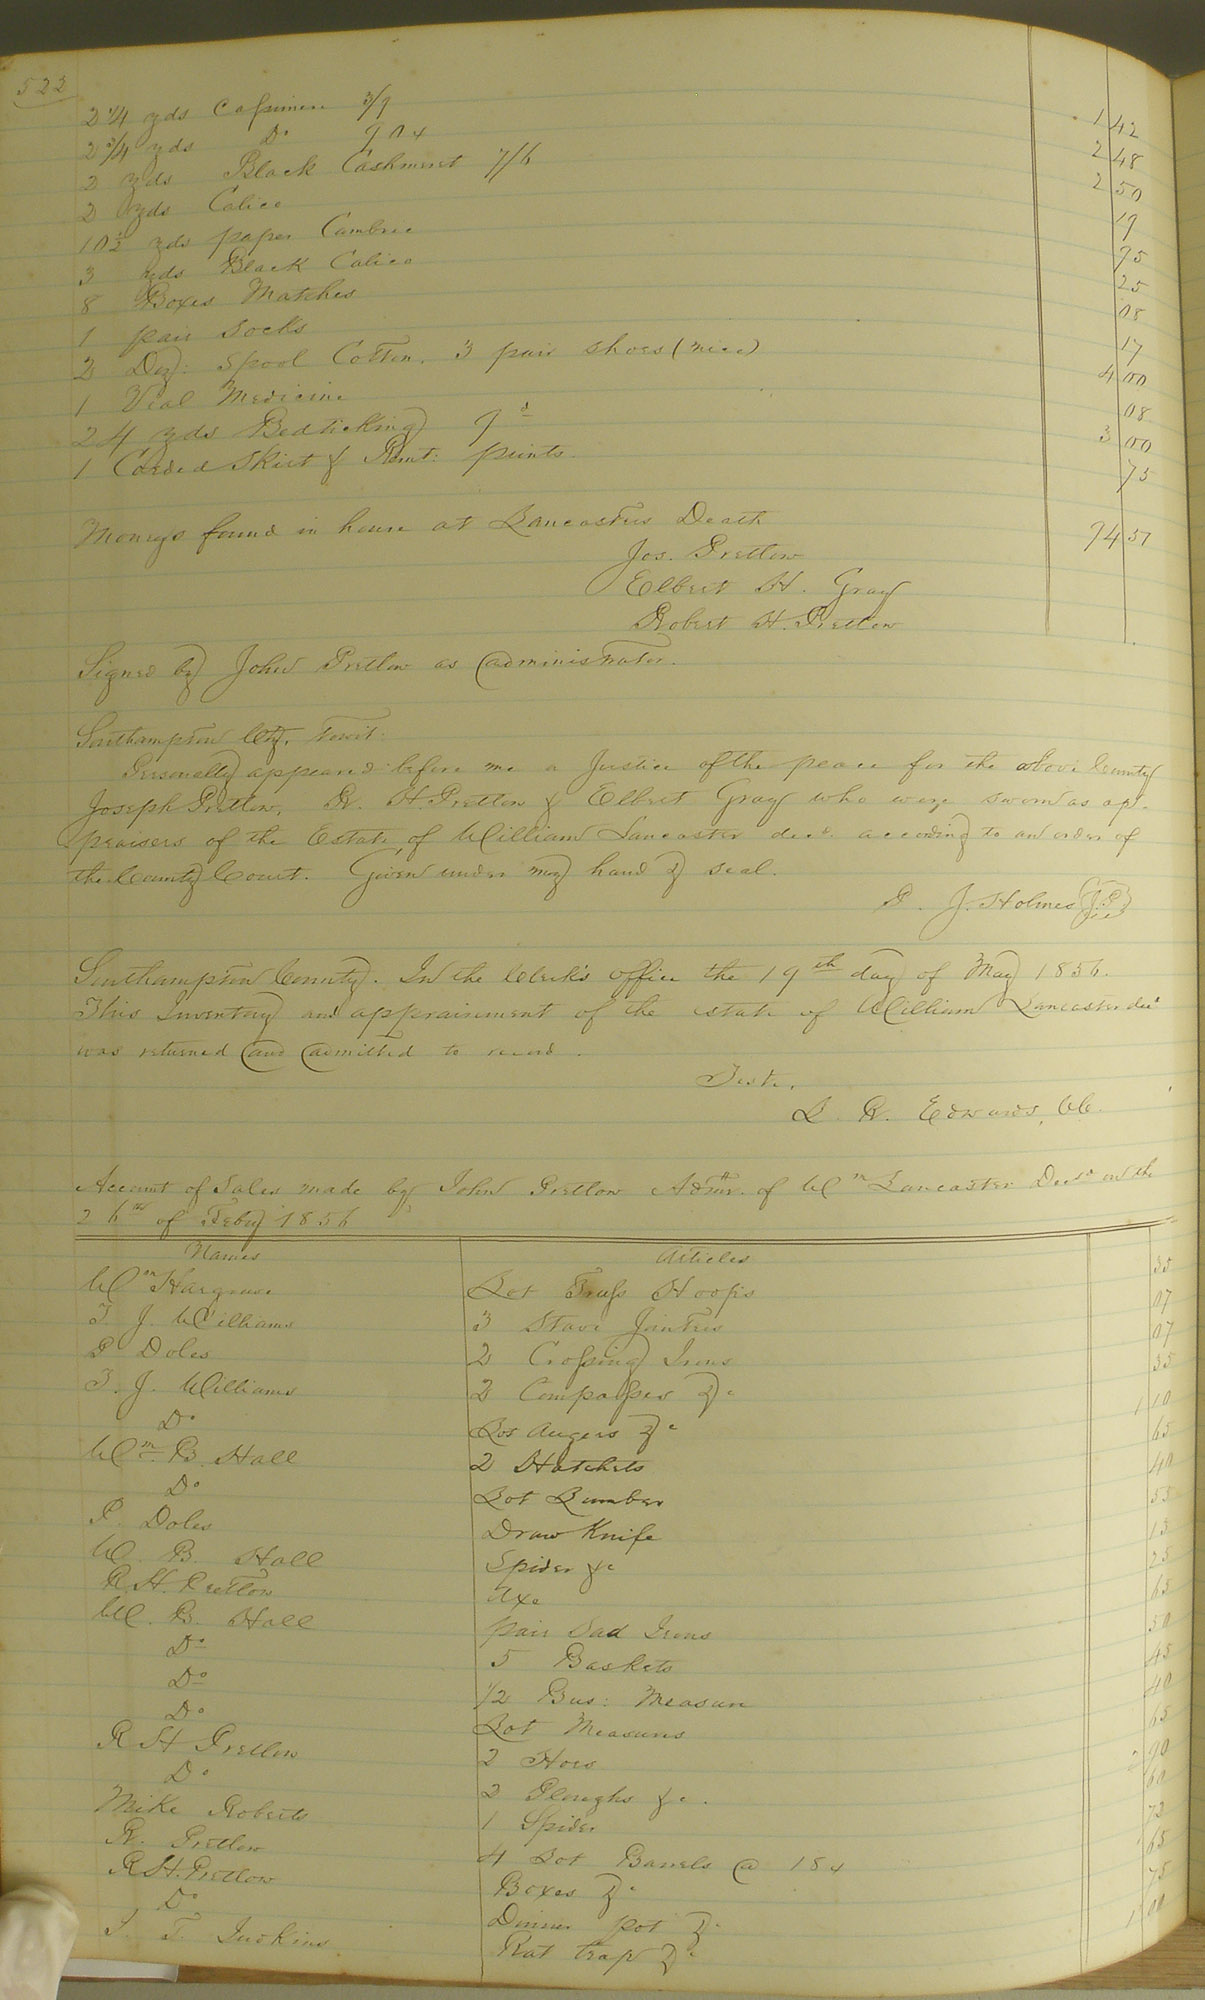 522
2 1/4 yds Cassimere 3/9 1 42
2 3/4 yds Do 90 cts 2 48
2 yds Black Cashmeret 7/6 2 50
2 yds Calico 19
10 1/2 yds paper Cambric 95
3 yds Black Calico 25
8 Boxes Matches 08
1 pair Socks 17
2 Doz: Spool Cotton. 3 pair shoes (nice) 4 00
1 Vial Medicine 08
24 yds Bedticking 9d 3 00
1 Corded Skirt & Remt: prints 75
Moneys found in house at Lancasters Death 94 57
Jos. Pretlow
Elbert H. Gray
Robert H. Pretlow
Signed by John Pretlow as administrator.
Southampton Cty, towit:
Personally appeared before me a Justice of the peace for the above County
Joseph Pretlow, R. H Pretlow & Elbert Gray who were sworn as ap-
praisers of the Estate of William Lancaster decd. according to an order of
the County Court. Given under my hand & seal.
J. Holmes J.P
Southampton County. In the Clerk's office the 19th day of May 1856.
This Inventory and appraisment of the estate of William Lancaster decd
was returned and admitted to record.
Teste,
L. R. Edwards, CC.
Account of Sales made by John Pretlow Admr. of Wm Lancaster Decd on the
26th of Feby 1856
Names Articles
Wm Hargrave Lot Truss Hoops 35
T. J. Williams 3 Stave Jointers 07
P Doles 2 Crossing Irons 07
T. J. Williams 2 Compasses &c 35
Do Lot Augers &c 1 10
Wm B. Hall 2 Hatchets 65
Do Lot Lumber 40
P. Doles Draw Knife 55
W. B. Hall Spider &c 13
R. H. Pretlow Axe 25
W. B. Hall pair Sad Irons 65
Do 5 Baskets 50
Do 1/2 Bus: Measure 45
Do Lot Measures 40
R H Pretlow 2 Hoes 65
Do 2 Ploughs &c. 2 90
Mike Roberts 1 Spider 60
R. Pretlow 4 Lot Barrels @ 18 cts 72
R H. Pretlow Boxes &c 65
Do Dinner pot &c 75
J. T. Judkins Rat trap &c 1 00